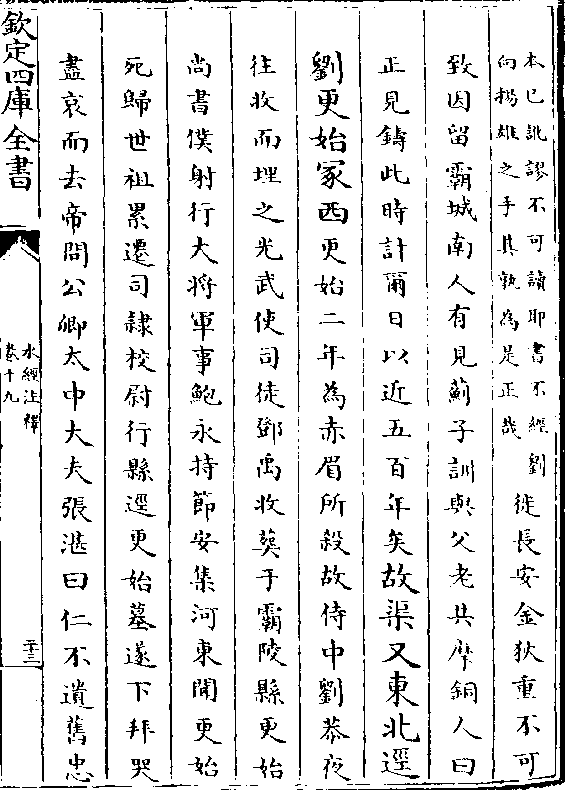 本已訛謬不可讀耶書不經劉
向揚雄之手其孰為是正哉
徙長安金狄重不可
致因留霸城南人有見薊子訓與父老共摩銅人曰
正見鑄此時計爾日以近五百年矣故渠又東北逕
劉更始冢西更始二年為赤眉所殺故侍中劉恭夜
往收而埋之光武使司徒鄧禹收葬于霸陵縣更始
尚書僕射行大將軍事鮑永持節安集河東聞更始
死歸世祖累遷司隸校尉行縣逕更始墓遂下拜哭
盡哀而去帝問公卿太中大夫張湛曰仁不遺舊忠
欽定四庫全書
水經注釋
卷十九
二十三